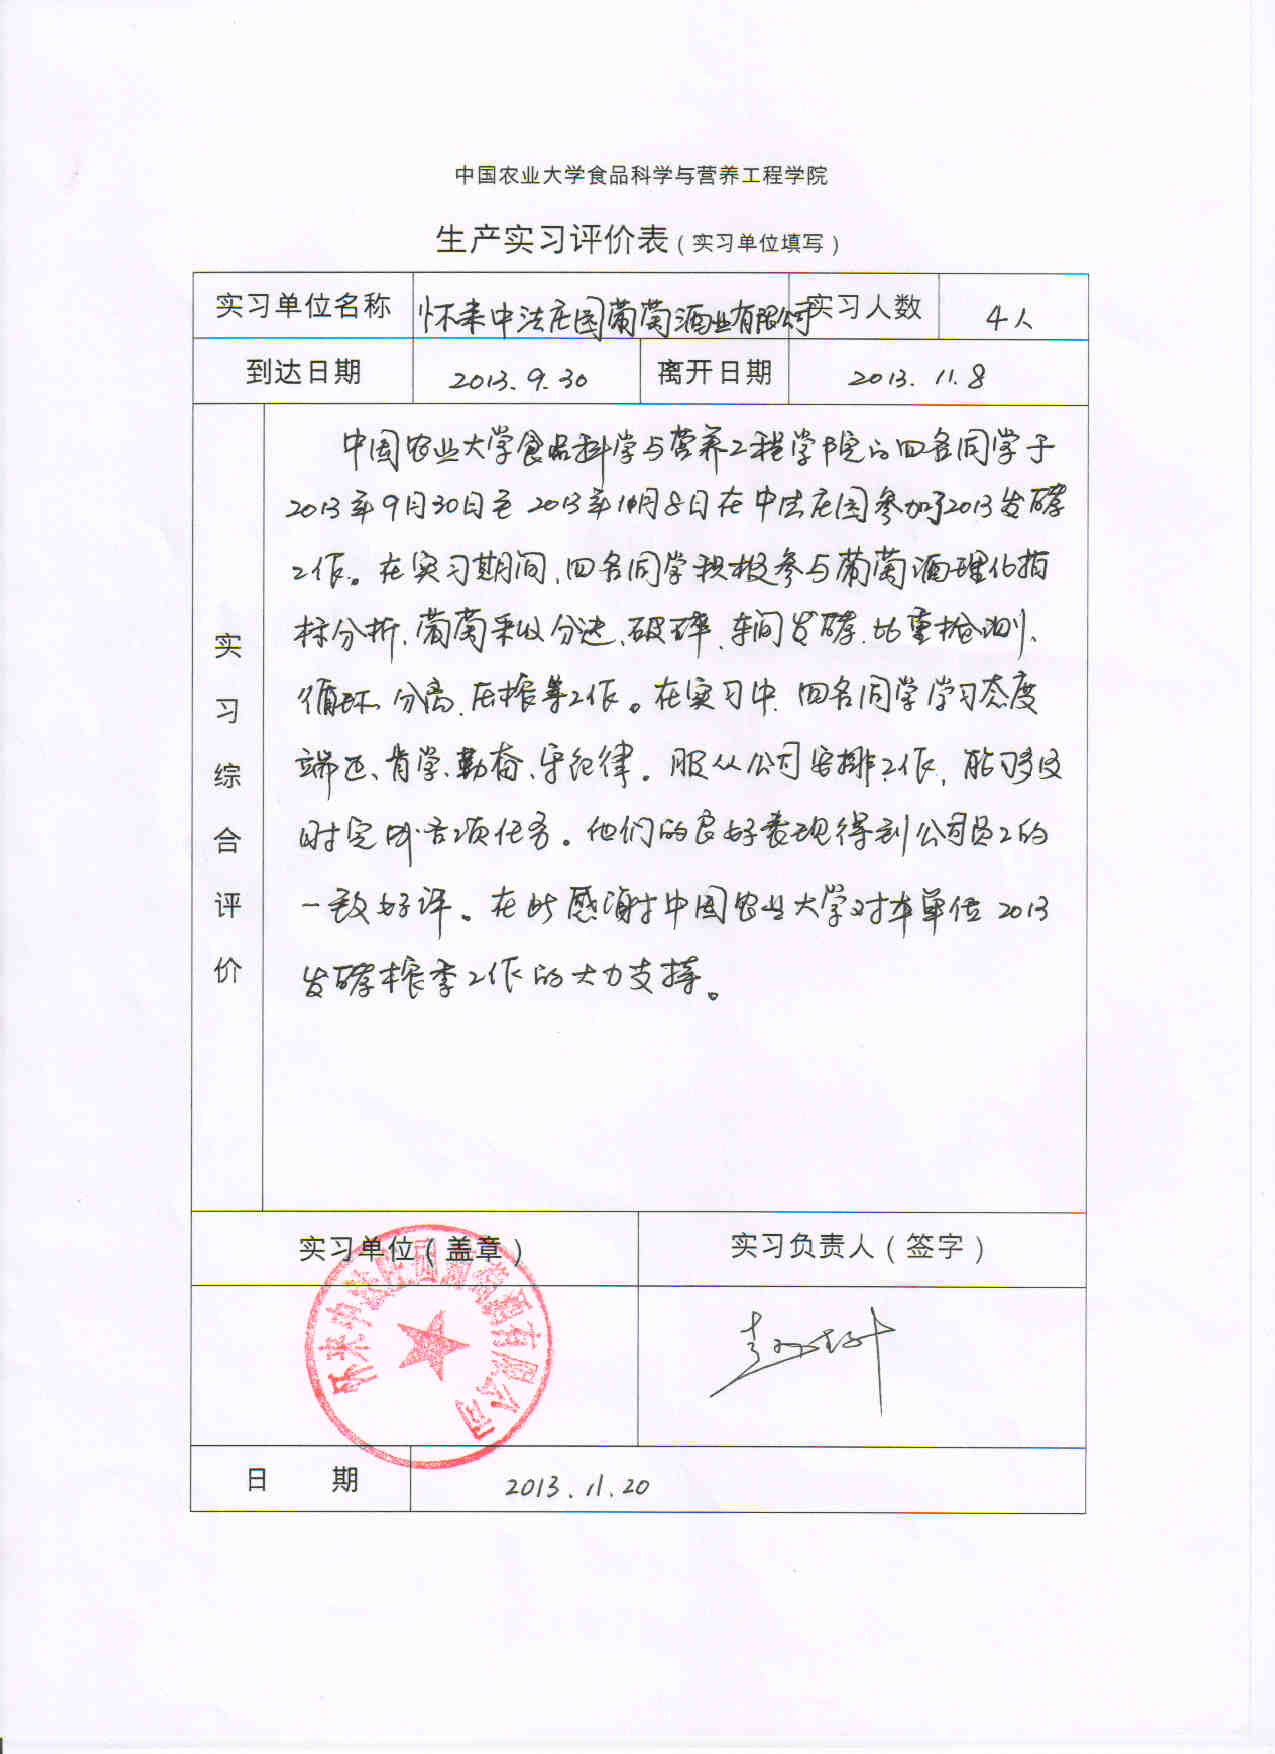 中国农业大学食品科学与营养工程学院
生产实习评价表（实习单位填写）
实习单位名称 怀来中法庄园葡萄酒业有限公司 实习人数 4人
到达日期 2013.9.30 离开日期 2013.11.8
实习综合评价
中国农业大学食品科学与营养工程学院的四名同学于
2013年9月30日至2013年11月8日在中法庄园参加了2013发酵
工作。在实习期间,四名同学积极参与葡萄酒理化指
标分析、葡萄采收分选、破碎、车间发酵、比重检测、
循环、分离、压榨等工作。在实习中,四名同学学习态度
端正、肯学、勤奋、守纪律。服从公司安排工作,能够及
时完成各项任务。他们的良好表现得到公司员工的
一致好评。在此感谢中国农业大学对本单位2013
发酵榨季工作的大力支持。
实习单位（盖章） 实习负责人（签字）
怀来中法庄园葡萄酒有限公司
日 期 2013.11.20